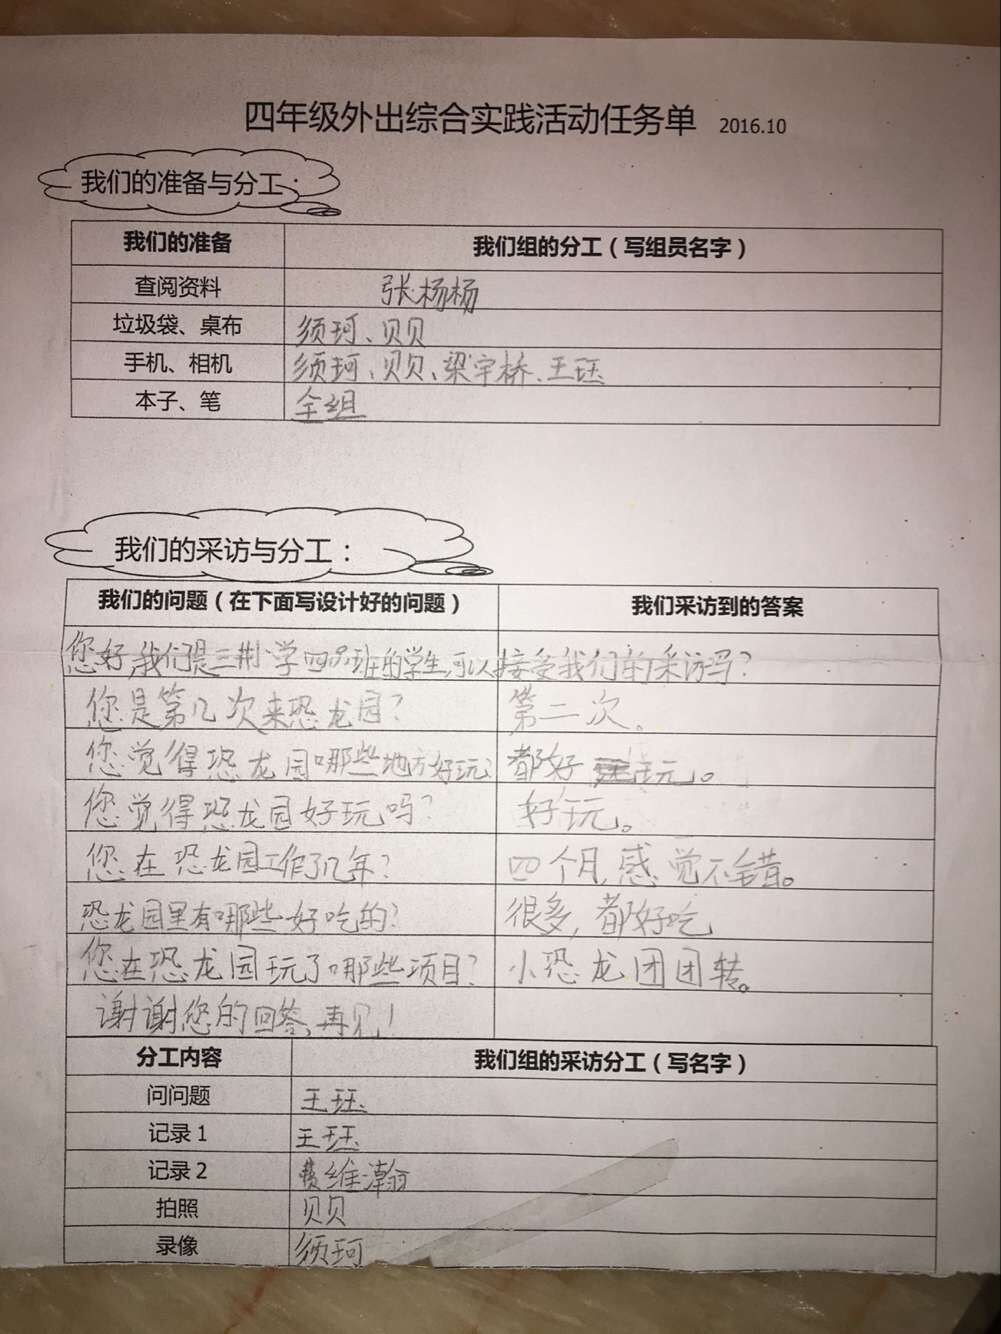 四年级外出综合实践活动任务单 2016.10
我们的准备与分工：
我们的准备 我们组的分工（写组员名字）
查阅资料 张杨杨
垃圾袋、桌布 须珂、贝贝
手机、相机 须珂、贝贝、梁宇桥、王珏
本子、笔 全组
我们的采访与分工：
我们的问题（在下面写设计好的问题） 我们采访到的答案
您好,我们是三 学四 班的学生,可以接受我们的采访吗？
您是第几次来恐龙园？ 第二次。
您觉得恐龙园哪些地方好玩？ 都好玩。
您觉得恐龙园好玩吗？ 好玩。
您在恐龙园工作了几年？ 四个月,感觉不错。
恐龙园里有哪些好吃的？ 很多,都好吃
您在恐龙园玩了哪些项目？ 小恐龙团团转。
谢谢您的回答,再见！
分工内容 我们组的采访分工（写名字）
问问题 王珏
记录1 王珏
记录2 维瀚
拍照 贝贝
录像 须珂